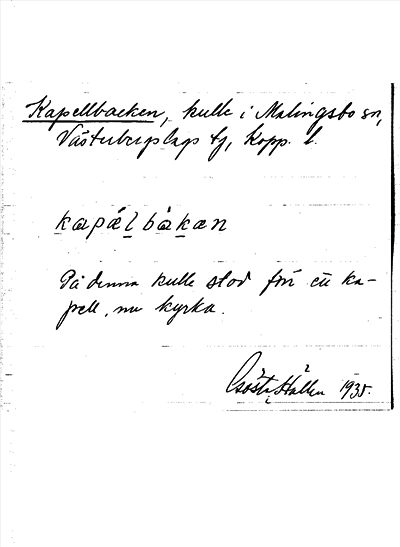 Kapellbacken, kulle i Malingsbo sn,
Västerbergslags tg, Kopp. l.
kapäl bakæn
På denna kulle stod förr ett ka-
pell, nu kyrka.
Gösta Hallin 1935.